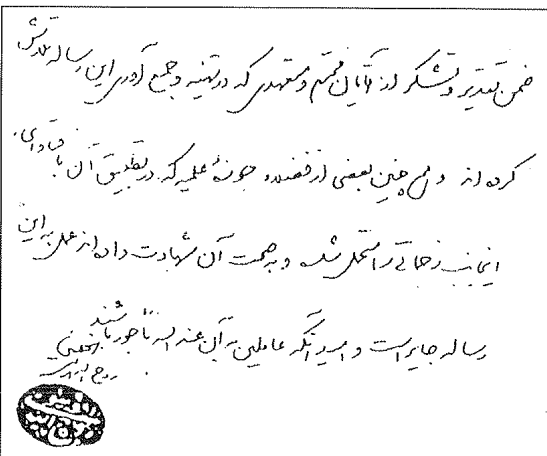 ضمن تقدیر و تشکر از آقایان محترم و متعهدی که در تهیه و جمع آوری این رساله تلاش
کرده اند و همچنین بعضی از فضلاء حوزهٔ علمیه که در تطبیق آن با فتاوای
اینجانب زحماتی را متحمل شده و به صحت آن شهادت داده اند عمل به این
رساله جایز است و امید آنکه عاملین به آن عند الله مأجور باشند
روح الله الموسوی الخمینی